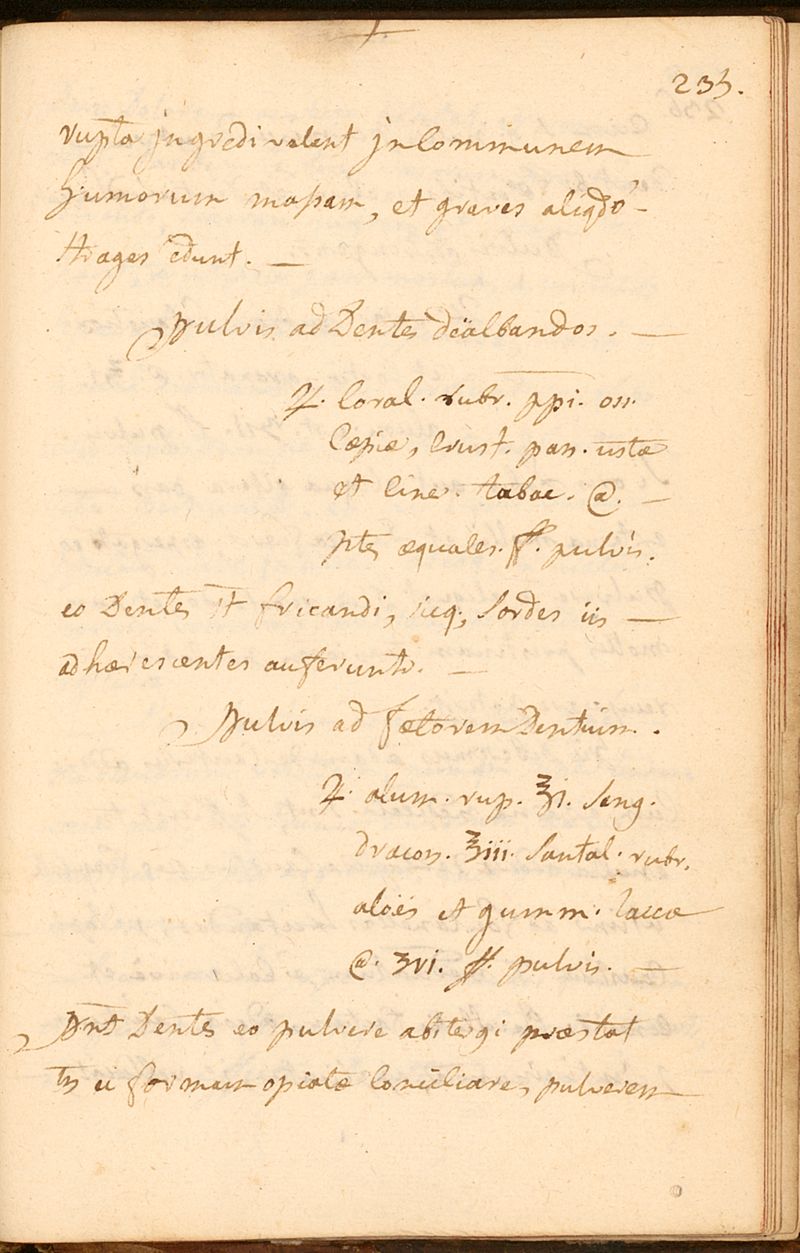 235.
rupta jngredivalent jn Communem
humorum maßam, et graves aliqdō
Strages edunt. —
Pulvis ad Dentes dëalbandos. —
♃. Coral. rubr. ppi. oss.
Cæpiæ, Crust. pan. ustæ
et Cine. tabac. @. —
ptes æquales. ff. pulvis.
eo Dentes st fricandi, sicq; Sordes iis —
adhærescentes auferuntr. —
Pulvis ad fœtorem Dentium.
♃. alum. rup. ʒi. Sang.
dracon. ʒiii. Santal. rubr.
aloës et gumm. laccæ
@. ʒvi. ff. pulvis. —
Pnt Dentes eo pulvere abstergi præstat
tn ei formam opiatæ Conciliare, pulverem